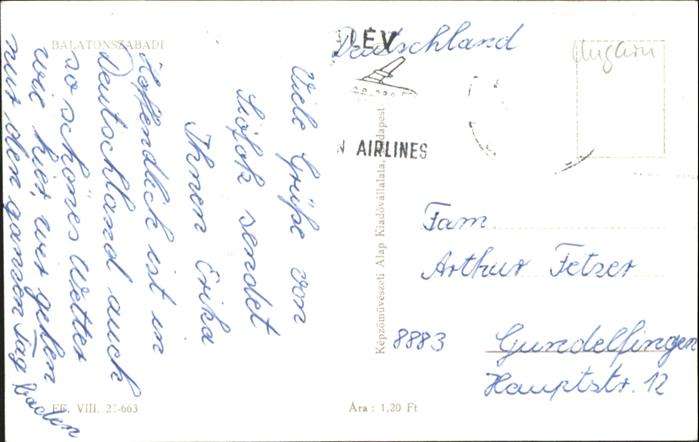 BALATONSZABADI
Viele Grüße von
Siófok sendet
Ihnen Erika
Hoffendlich ist in
Deutschland auch
so schönes Wetter
wie hier, wir gehen
nur den ganzen Tag
baden
FF. VIII. 27-663
Ára : 1,20 Ft
Képzőművészeti Alap Kiadóvállalata, Budapest
LÉV
N AIRLINES
Deutschland
Ungarn
Fam.
Arthur Fetzer
8883 Gundelfingen
Hauptstr. 12